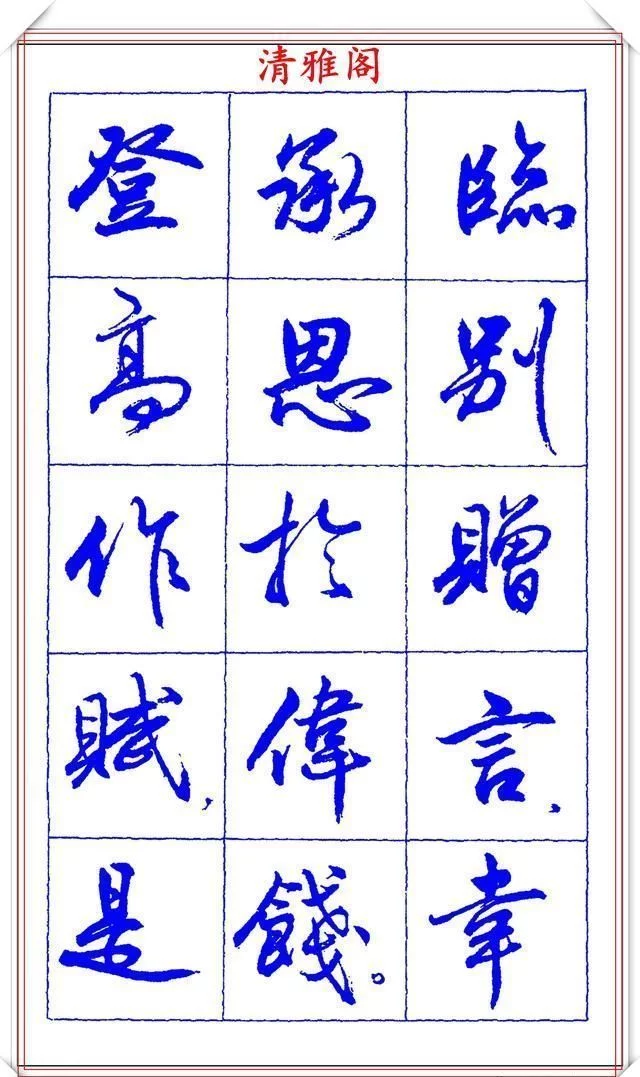 清雅阁
臨別贈言、幸
承恩於偉餞。
登高作賦，是